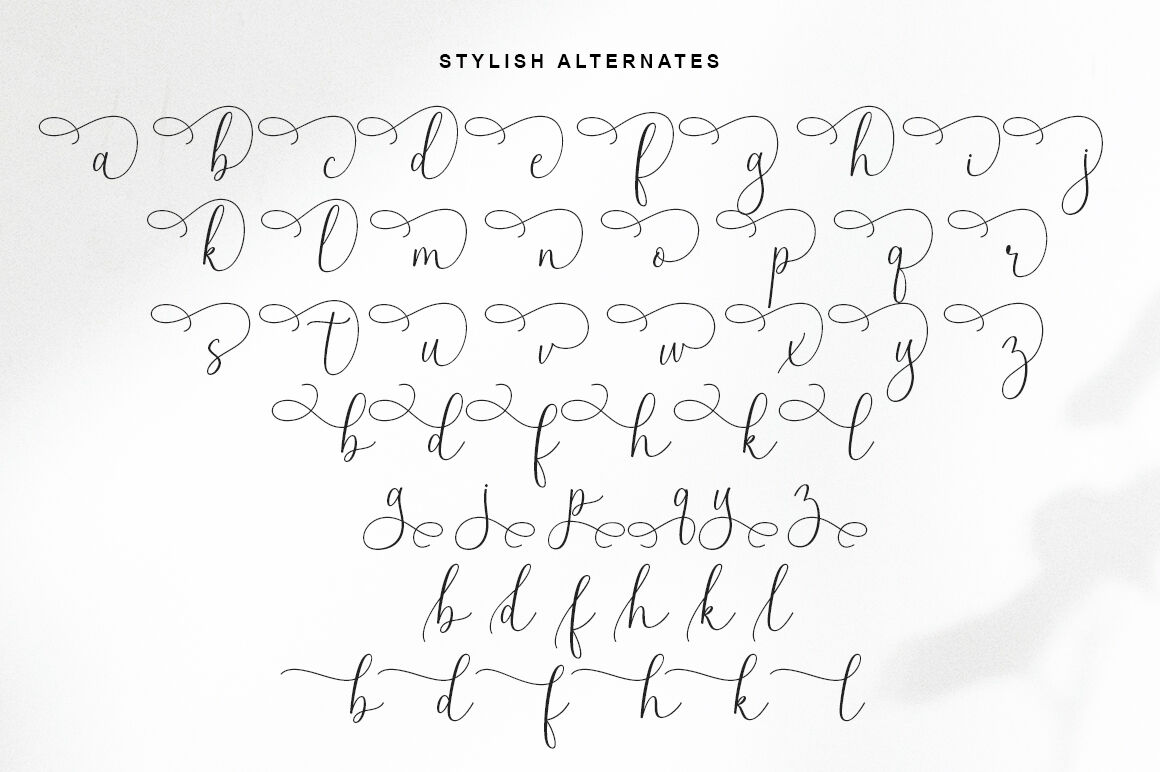 STYLISH ALTERNATES
a b c d e f g h i j
k l m n o p q r
s t u v w x y z
b d f h k l
g j p q y z
b d f h k l
b d f h k l